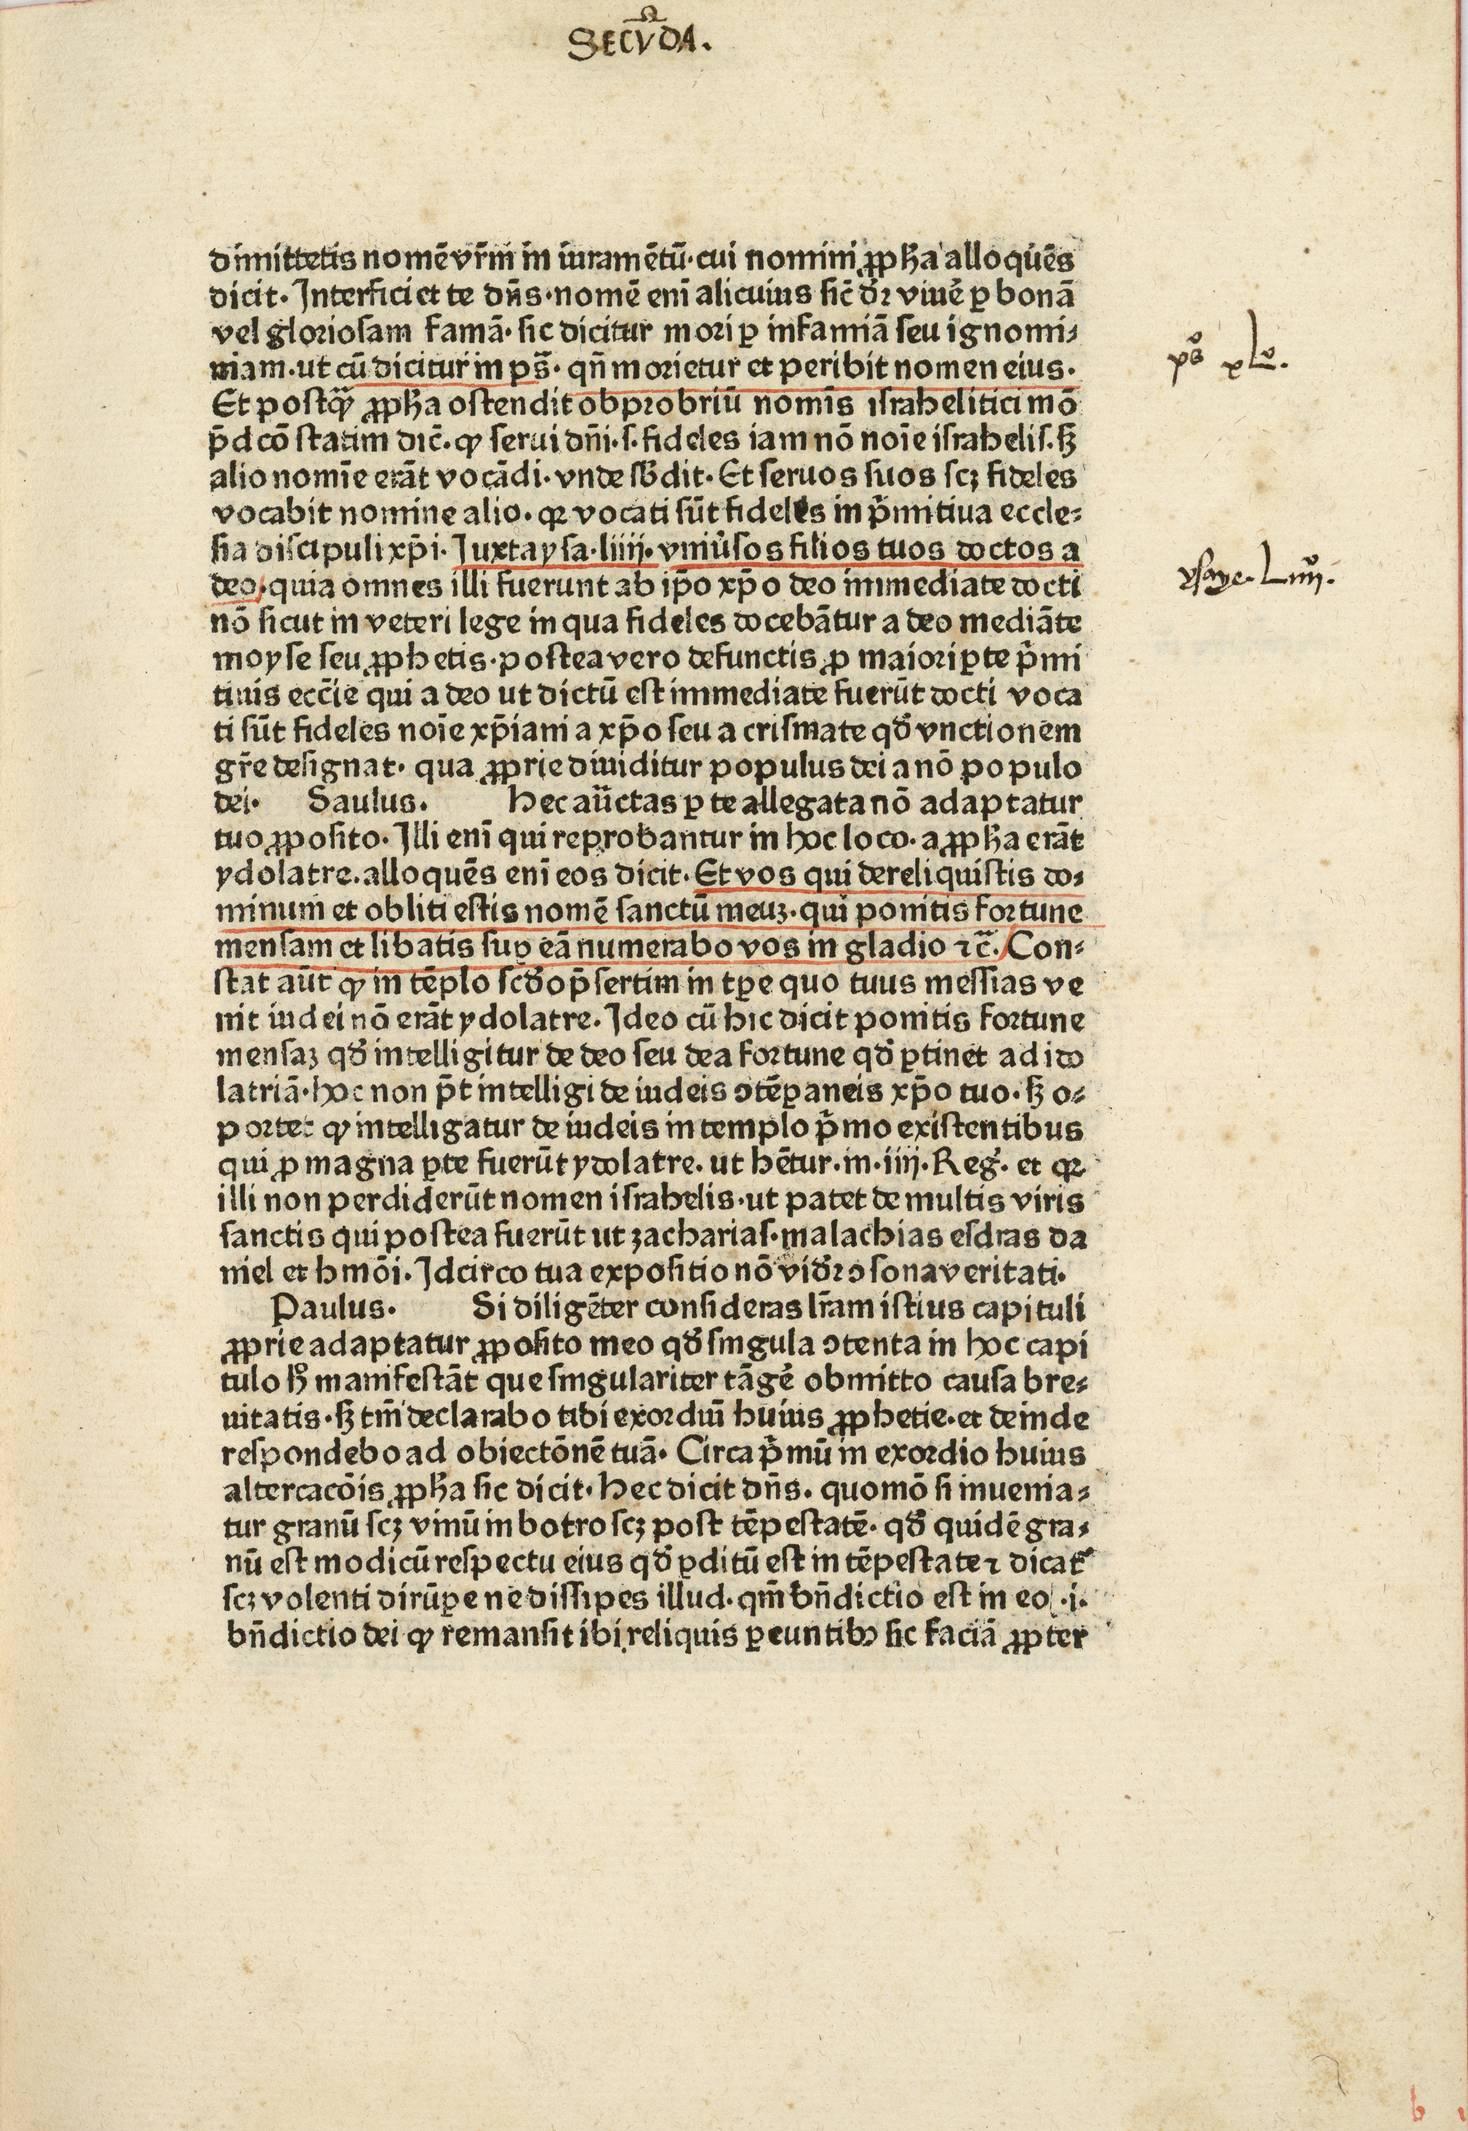 SECŪDA.
dimittetis nomē vr̄m in iuramētū·cui nomini ꝓpħa alloquēs
dicit·Interficiet te dn̄s·nomē enī alicuius sic̄ dr̄ viuē ꝑ bonā
vel gloriosam famā·sic dicitur mori ꝑ infamiā seu ignomi⸗
niam·ut cū dicitur in ps̄·qn̄ morietur et peribit nomen eius·
Et postqꝫ̄ ꝓpħa ostendit obprobriū nomīs israhelitici mō
p̄d cō statim dic̄·ꝙ serui dn̄i·s·fideles iam nō noīe israhelis·sꝫ
alio nomīe erāt vocādi·vnde sb̄dit·Et seruos suos scꝫ fideles
vocabit nomine alio·qꝛ vocati sūt fideles in p̄mitiua eccle⸗
sia discipuli xp̄i·Iuxta ysa·liiij·vniūsos filios tuos doctos a
deo·quia omnes illi fuerunt ab ip̄o xp̄o deo immediate docti
nō sicut in veteri lege in qua fideles docebātur a deo mediāte
moyse seu ꝓphetis·postea vero defunctis ꝓ maiori ꝑte p̄mi
tiuis ecc̄ie qui a deo ut dictū est immediate fuerūt docti voca
ti sūt fideles noīe xp̄iani a xp̄o seu a crismate qd̄ vnctionem
gr̄e designat·qua ꝓprie diuiditur populus dei a nō populo
dei· Saulus. Hec aūctas ꝑ te allegata nō adaptatur
tuo ꝓposito·Illi enī qui reprobantur in hoc loco·a ꝓpħa erāt
ydolatre·alloquēs enī eos dicit·Et vos qui dereliquistis do⸗
minum et obliti estis nomē sanctū meuꝫ·qui ponitis fortune
mensam et libatis suꝑ eā numerabo vos in gladio ⁊c̄·Con⸗
stat aūt ꝙ in tēplo scd̄o p̄sertim in tꝑe quo tuus messias ve
nit iudei nō erāt ydolatre·Ideo cū hic dicit ponitis fortune
mensaꝫ qd̄ intelligitur de deo seu dea fortune qd̄ ꝑtinet ad ido
latriā·hoc non p̄t intelligi de iudeis ↄtēꝑaneis xp̄o tuo·sꝫ o⸗
portet ꝙ intelligatur de iudeis in templo p̄mo existentibus
qui ꝓ magna ꝑte fuerūt ydolatre·ut hētur·in·iiij·Reḡ·et qꝛ
illi non perdiderūt nomen israhelis·ut patet de multis viris
sanctis qui postea fuerūt ut zacharias·malachias esdras da
niel et hmōi·Idcirco tua expositio nō vid̄r ↄsona veritati·
Paulus· Si diligēter consideras lr̄am istius capituli
ꝓprie adaptatur ꝓposito meo qd̄ singula ↄtenta in hoc capi
tulo hͦ manifestāt que singulariter tāgē obmitto causa bre⸗
uitatis·sꝫ tm̄ declarabo tibi exordiū huius ꝓphetie·et deinde
respondebo ad obiectōnē tuā·Circa p̄mū in exordio huius
altercacōis ꝓpħa sic dicit·Hec dicit dn̄s·quomō si inuenia⸗
tur granū scꝫ vinū in botro scꝫ post tēpestatē·qd̄ quidē gra⸗
nū est modicū respectu eius qd̄ ꝑditū est in tēpestate ⁊ dicat᷑
scꝫ volenti dirūꝑe ne dissipes illud·qm̄ bn̄dictio est in eo·i·
bn̄dictio dei ꝙ remansit ibi reliquis ꝑeuntibꝰ sic faciā ꝓpter
ps̊ xLͦ.
ysaye. Liiijͦ.
b